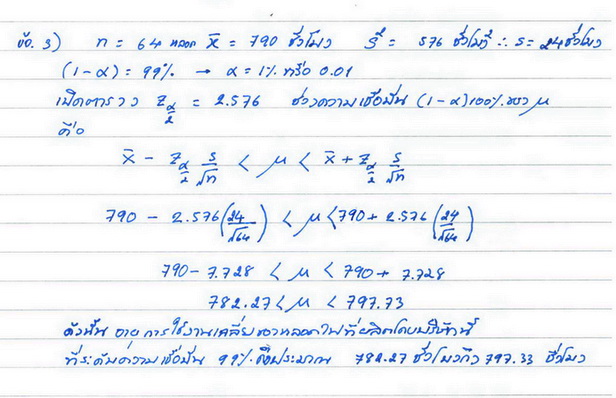 ข้อ. 3) n = 64 หลอด x̄ = 790 ชั่วโมง S² = 576 ชั่วโมง² ∴ s = 24 ชั่วโมง
(1-α) = 99% → α = 1% หรือ 0.01
เปิดตาราง Z_{α/2} = 2.576 ช่วงความเชื่อมั่น (1-α)100% ของ μ
คือ
x̄ - Z_{α/2} s/√n < μ < x̄ + Z_{α/2} s/√n
790 - 2.576(24/√64) < μ < 790 + 2.576(24/√64)
790 - 7.728 < μ < 790 + 7.728
782.27 < μ < 797.73
ดังนั้น อายุการใช้งานเฉลี่ยของหลอดไฟที่ผลิตโดยบริษัทนี้
ที่ระดับความเชื่อมั่น 99% คือประมาณ 782.27 ชั่วโมงถึง 797.33 ชั่วโมง